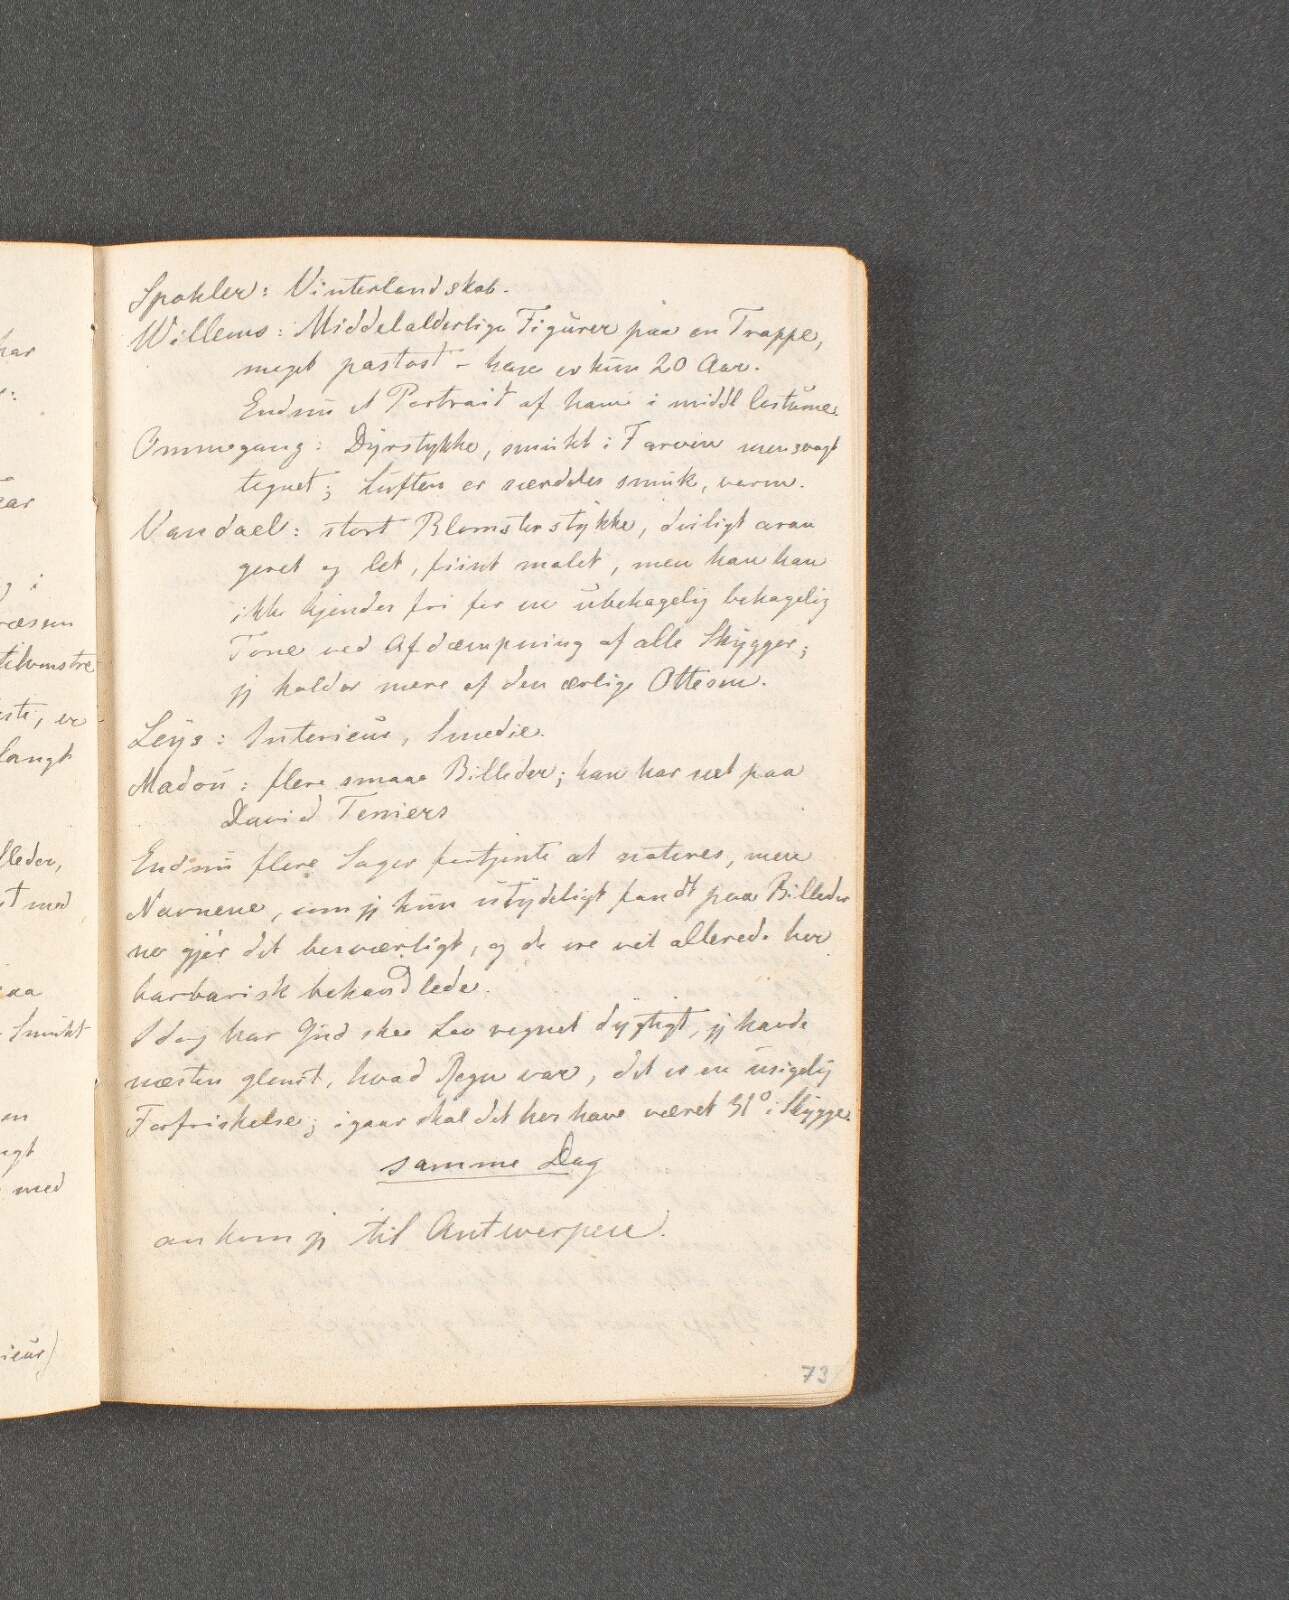 Spohler: Vinterlandskab.
Willems: Middelalderlige Figurer paa en Trappe,
meget pastost – han er kun 20 Aar.
Endnu et Portrait af ham i middl Costume.
Ommegang: Dyrstykke, smukt i Farven men svagt
tegnet; Luften er særdeles smuk, varm.
Vandael: stort Blomsterstykke, deiligt aran
geret og let, fiint malet, men han kan
ikke kjendes fri for en ubehagelig behagelig
Tone ved Afdæmpning af alle Skygger;
jeg holder mere af den ærlige Ottesen.
Leys: Interieur, Smedie.
Madou: flere smaae Billeder; han har seet paa
David Teniers
Endnu flere Sager fortjente at noteres, men
Navnene, som jeg kun utydeligt fandt paa Billeder
ne gjør det besværligt, og de ere vel allerede her
barbarisk behandlede.
I dag har Gud skee Lov regnet dygtigt, jeg havde
næsten glemt, hvad Regn var, det er en usigelig
Forfriskelse; igaar skal det her have været 31° i Skygge
samme Dag
ankom jeg til Antwerpen.
73
har
i
ræssen
tilvenstre
langt
lleder,
st med
Smukt
med
ieur)